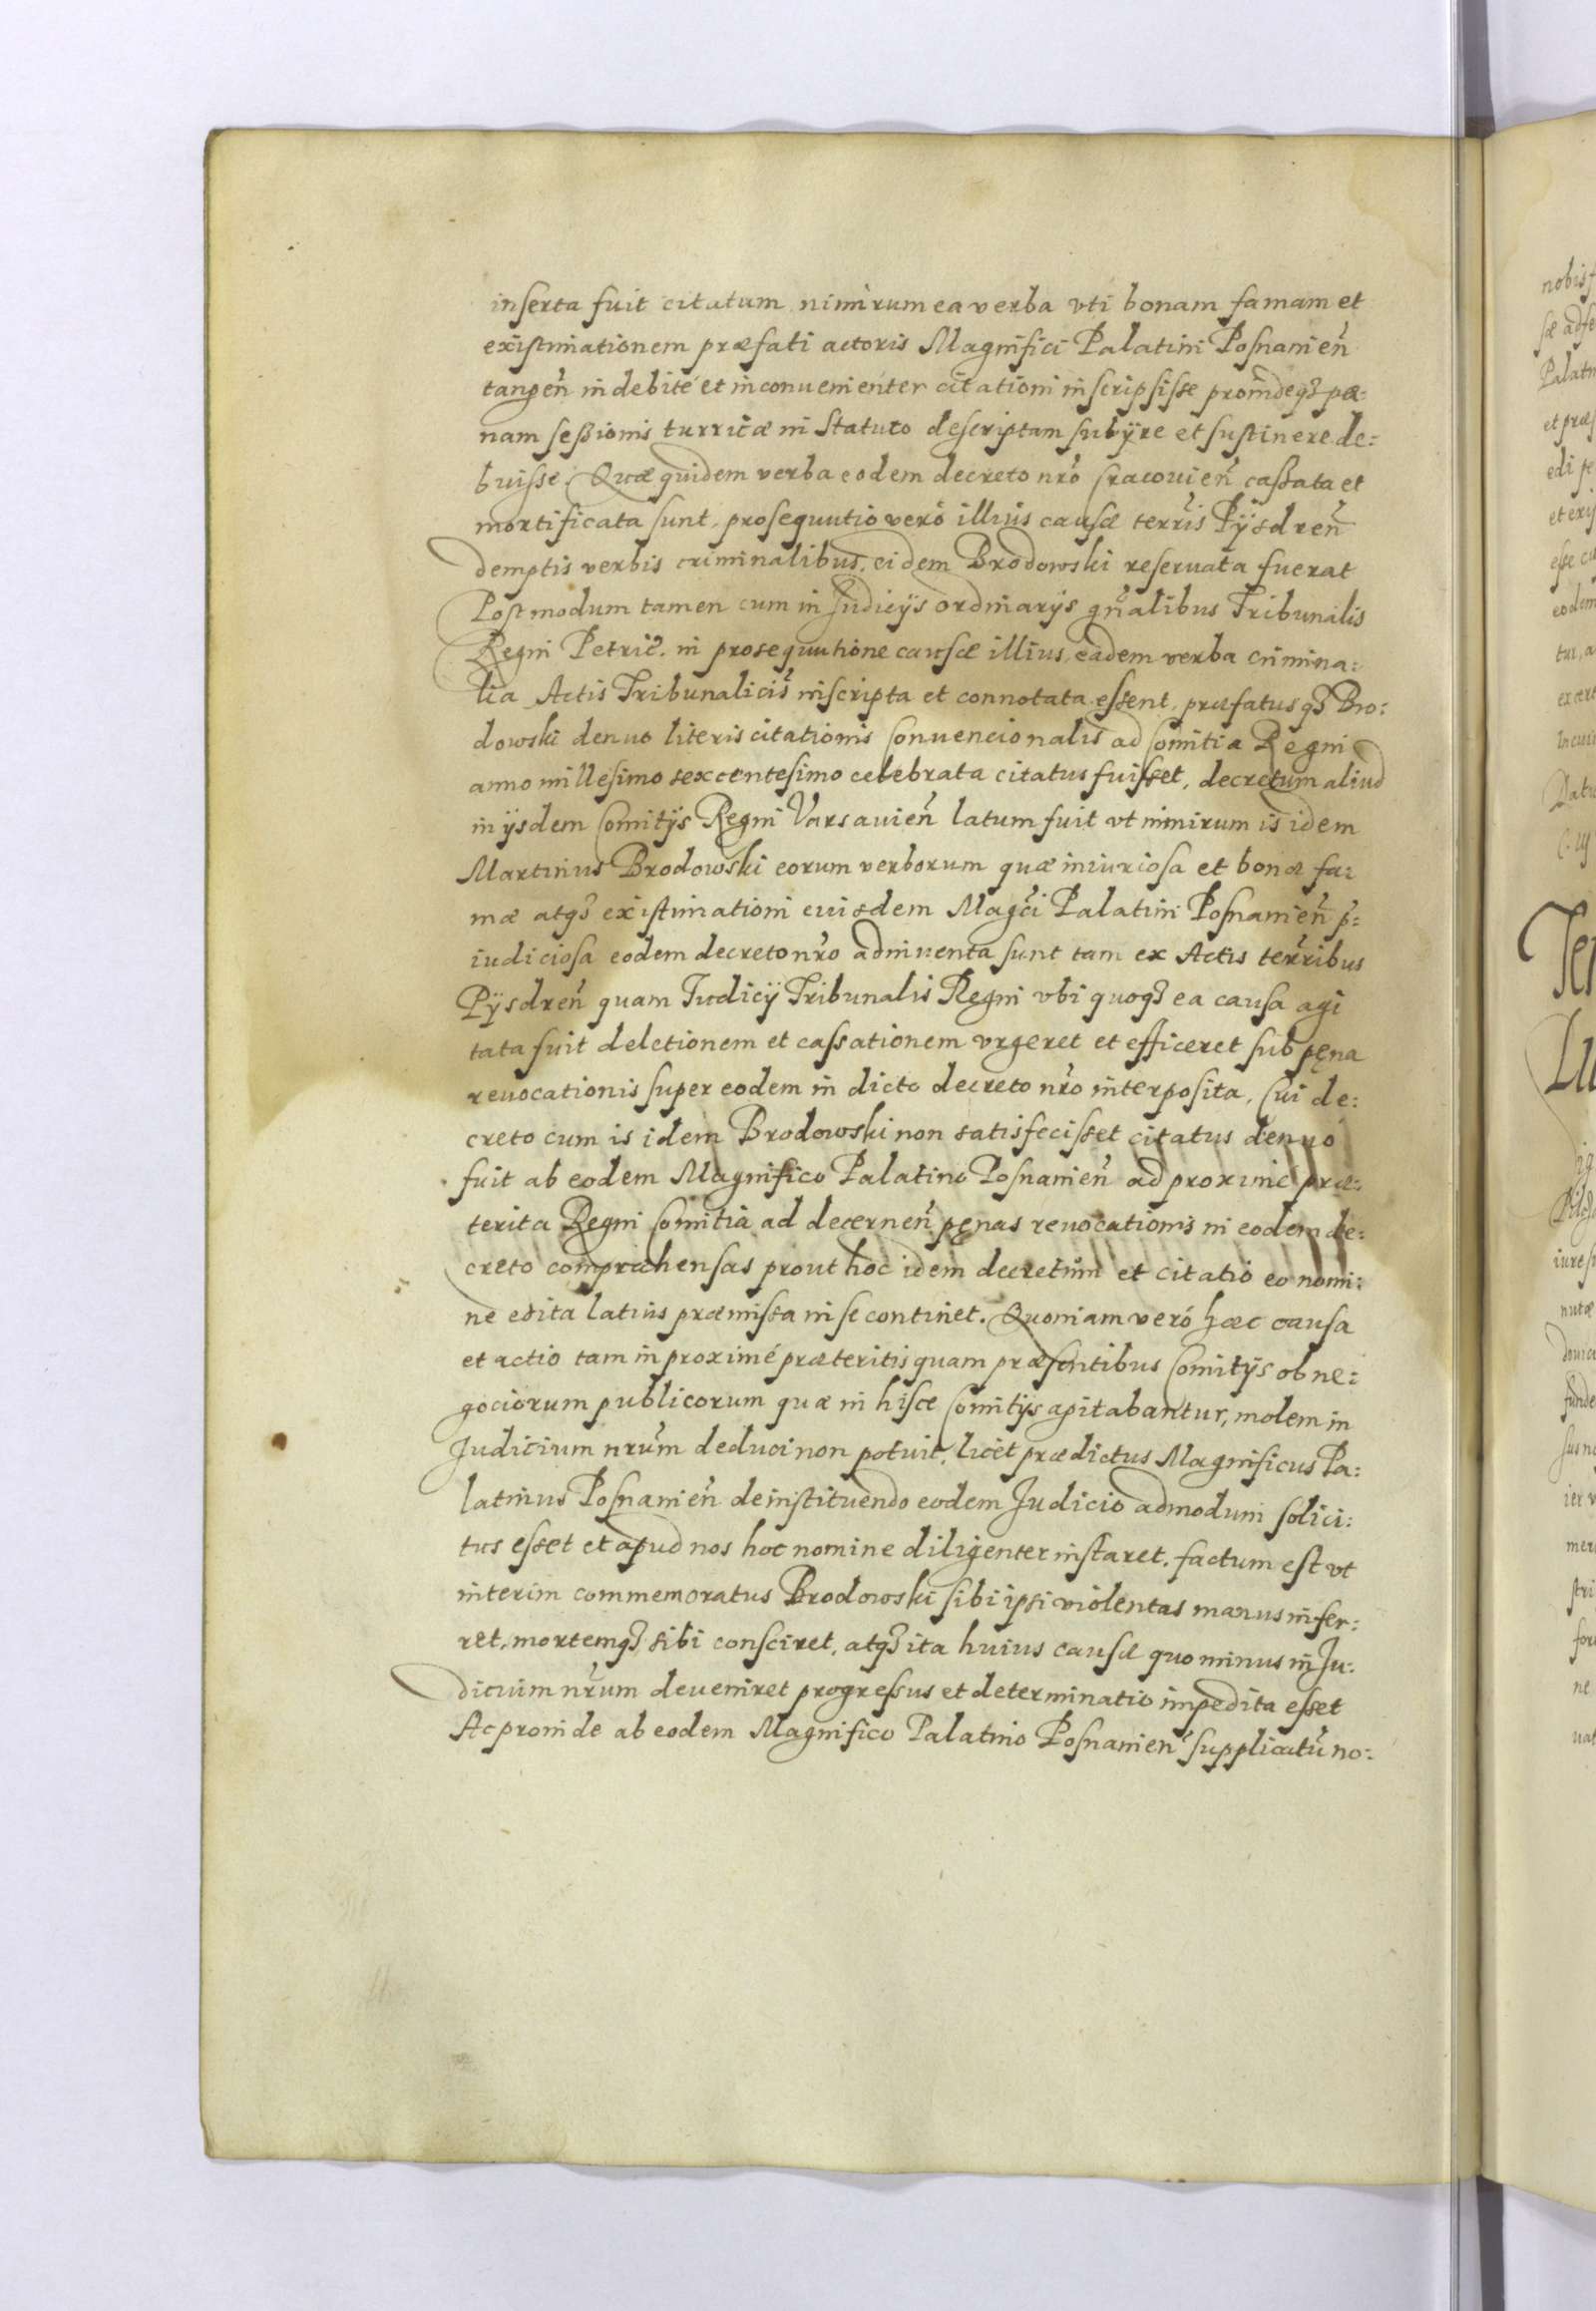 inserta fuit citatum nimirum ea verba vti bonam famam et
existimationem præfati actoris Magnifici Palatini Posnanien̄
tangen̄ indebité et inconuenienter citationi inscripsisse proindeqȝ pæ-
nam seßionis turricæ in Statuto descriptam subÿre et sustinere de:
buisse. Quæ quidem verba eodem decreto nr̄o Cracouien̄ caßata et
mortificata sunt, prosequutio veró illius causæ terrīs Pÿsdren̄
demptis verbis criminalibus, eidem Brodowski reseruata fuerat
Postmodum tamen cum in Judicijs ordinarijs gn̄alibus Tribunalis
Regni Petric̄. in prosequutione causæ illius, eadem verba crimina:
lia Actis Tribunalicīs inscripta et connotata essent, præfatusqȝ Bro:
dowski denuo literis citationis Conuencionalis ad Comitia Regni
anno millesimo sexcentesimo celebrata citatus fuisset, decretum aliud
in ijsdem Comitijs Regni Varsauien̄ latum fuit vt nimirum is idem
Martinus Brodowski eorum verborum quæ iniuriosa et bonæ fa:
mæ atqȝ existimationi eiusdem Magc̄i Palatini Posnanien̄ p̄:
iudiciosa eodem decreto nr̄o adinuenta sunt tam ex Actis terr̄ibus
Pÿsdren̄ quam Judicÿ Tribunalis Regni vbi quoqȝ ea causa agi
tata fuit deletionem et cassationem vrgeret et efficeret sub pęna
reuocationis super eodem in dicto decreto nr̄o interposita, Cui de:
creto cum is idem Brodowski non satisfecisset citatus denuó
fuit ab eodem Magnifico Palatino Posnanien̄ ad proximé præ:
terita Regni Comitia ad decernen̄ pęnas reuocationis in eodem de:
creto compræhensas prout hoc idem decretum et citatio eo nomi:
ne edita latius præmissa in se continet. Quoniam veró hæc causa
et actio tam in proximé præteritis quam præsentibus Comitijs ob ne:
gociorum publicorum quæ in hisce Comitijs agitabantur, molem in
Judicium nr̄um deduci non potuit, licet prædictus Magnificus Pa:
latinus Posnanien̄ de instituendo eodem Judicio admodum solici:
tus esset et apud nos hoc nomine diligenter instaret. factum est vt
interim commemoratus Brodowski sibi ipsi violentas manus infer:
ret, mortemqȝ sibi consciret, atqȝ ita huius causæ quominus in Ju:
dicium nr̄um deueniret progressus et determinatio impedita esset
Ac proinde ab eodem Magnifico Palatino Posnanien̄ supplicatū no: